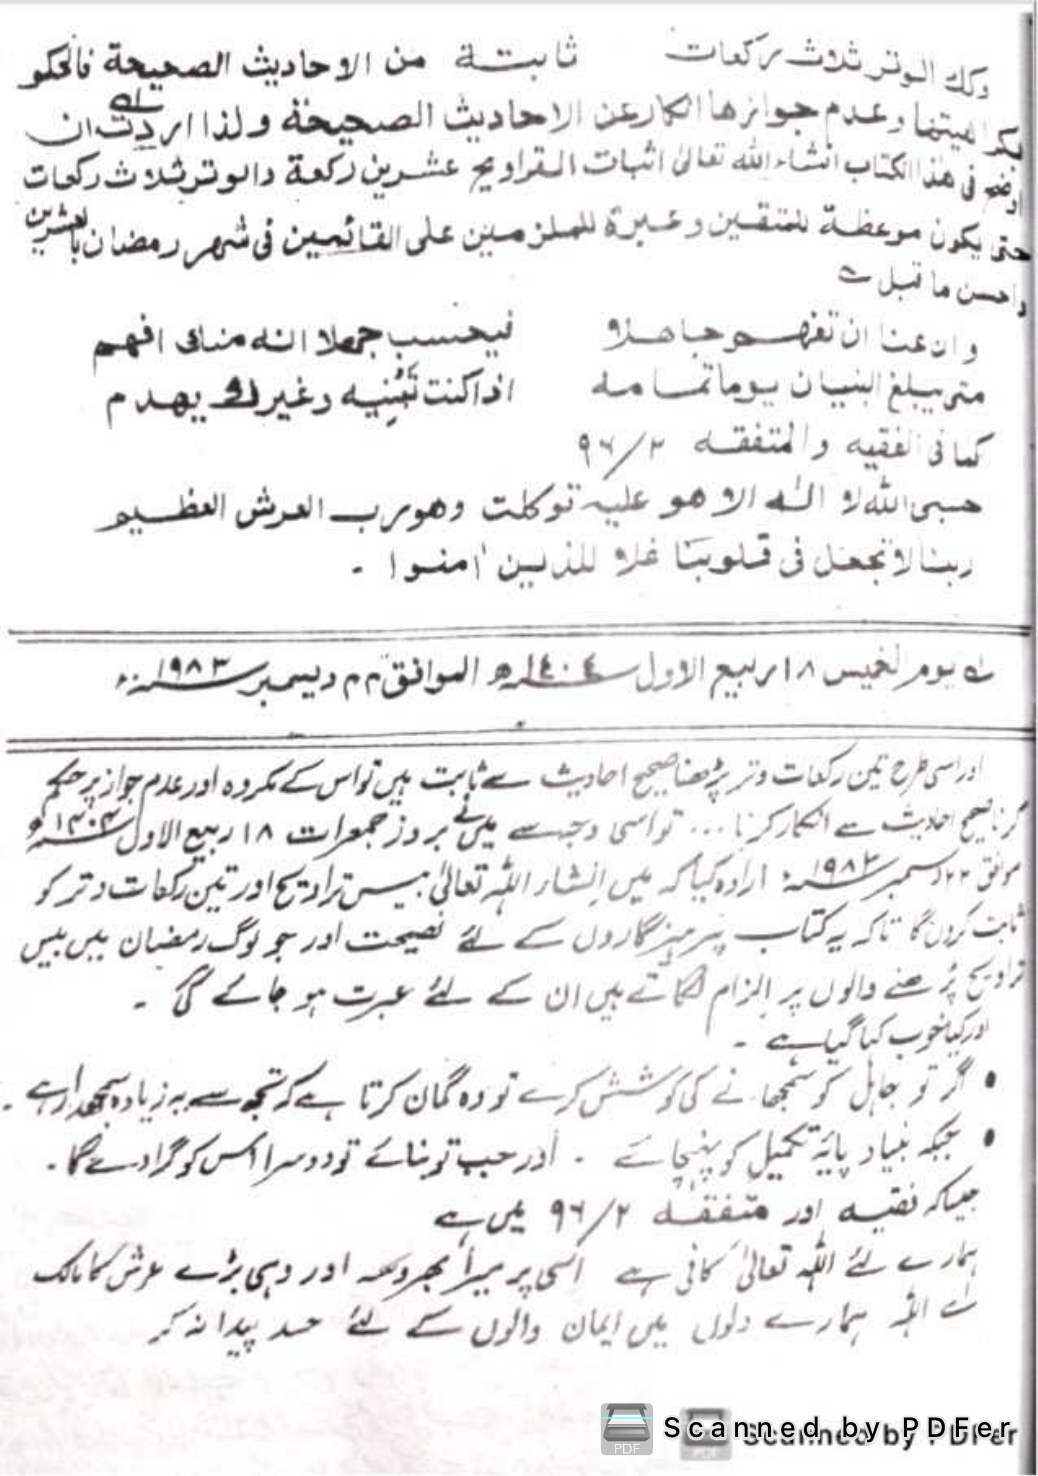 وكذ الوتر ثلاث ركعات ثابتة من الاحاديث الصحيحة فالحكم
بكراهيتها وعدم جوازها انكار عن الاحاديث الصحيحة ولذا اردت له ان
اوضح فى هذا الكتاب انشاء الله تعالى اثبات التراويح عشرين ركعة والوتر ثلاث ركعات
حتى يكون موعظة للمتقين وعبرة للملزمين على القائمين فى شهر رمضان بالعشرين
واحسن ما قيل ے
وان عنا ان تفهم جاهلا فيحسب جهلا انه منك افهم
متى يبلغ البنيان يوما تمامه اذا كنت تبنيه وغيرك يهدم
كما فى الفقيه والمتفقه ٢/٩٦
حسبى الله لا اله الا هو عليه توكلت وهو رب العرش العظيم
ربنا لا تجعل فى قلوبنا غلا للذين اٰمنوا ۔
له يوم الخميس ١٨ ربيع الاول ١٤٠٤ھ الموافق ٢٢ ديسمبر ١٩٨٣ء
اور اسی طرح تین رکعات وتر پڑھنا صحیح احادیث سے ثابت ہیں تو اس کے مکروہ اور عدم جواز پر حکم
کرنا صحیح احادیث سے انکار کرنا ... تو اسی وجہ سے میں نے بروز جمعرات ١٨ ربیع الاول ١٤٠٤ھ
موافق ٢٢ دسمبر ١٩٨٣ء ارادہ کیا کہ میں انشاء اللہ تعالیٰ بیس تراویح اور تین رکعات وتر کو
ثابت کروں گا تاکہ یہ کتاب پرہیزگاروں کے لئے نصیحت اور جو لوگ رمضان میں بیس
تراویح پڑھنے والوں پر الزام لگاتے ہیں ان کے لئے عبرت ہو جائے گی ۔
اور کیا خوب کہا گیا ہے ۔
• اگر تو جاہل کو سمجھانے کی کوشش کرے تو وہ گمان کرتا ہے کہ تجھ سے یہ زیادہ سمجھدار ہے ۔
• جبکہ بنیاد پایۂ تکمیل کو پہنچائے ۔ اور جب تو بنائے تو دوسرا اس کو گرا دے گا ۔
جیسا کہ فقیہ اور متفقہ ٢/٩٦ میں ہے
ہمارے لئے اللہ تعالیٰ کافی ہے اسی پر میرا بھروسہ اور وہی بڑے عرش کا مالک
اے اللہ ہمارے دلوں میں ایمان والوں کے لئے حسد پیدا نہ کر
Scanned by PDFer
Scanned by PDFer